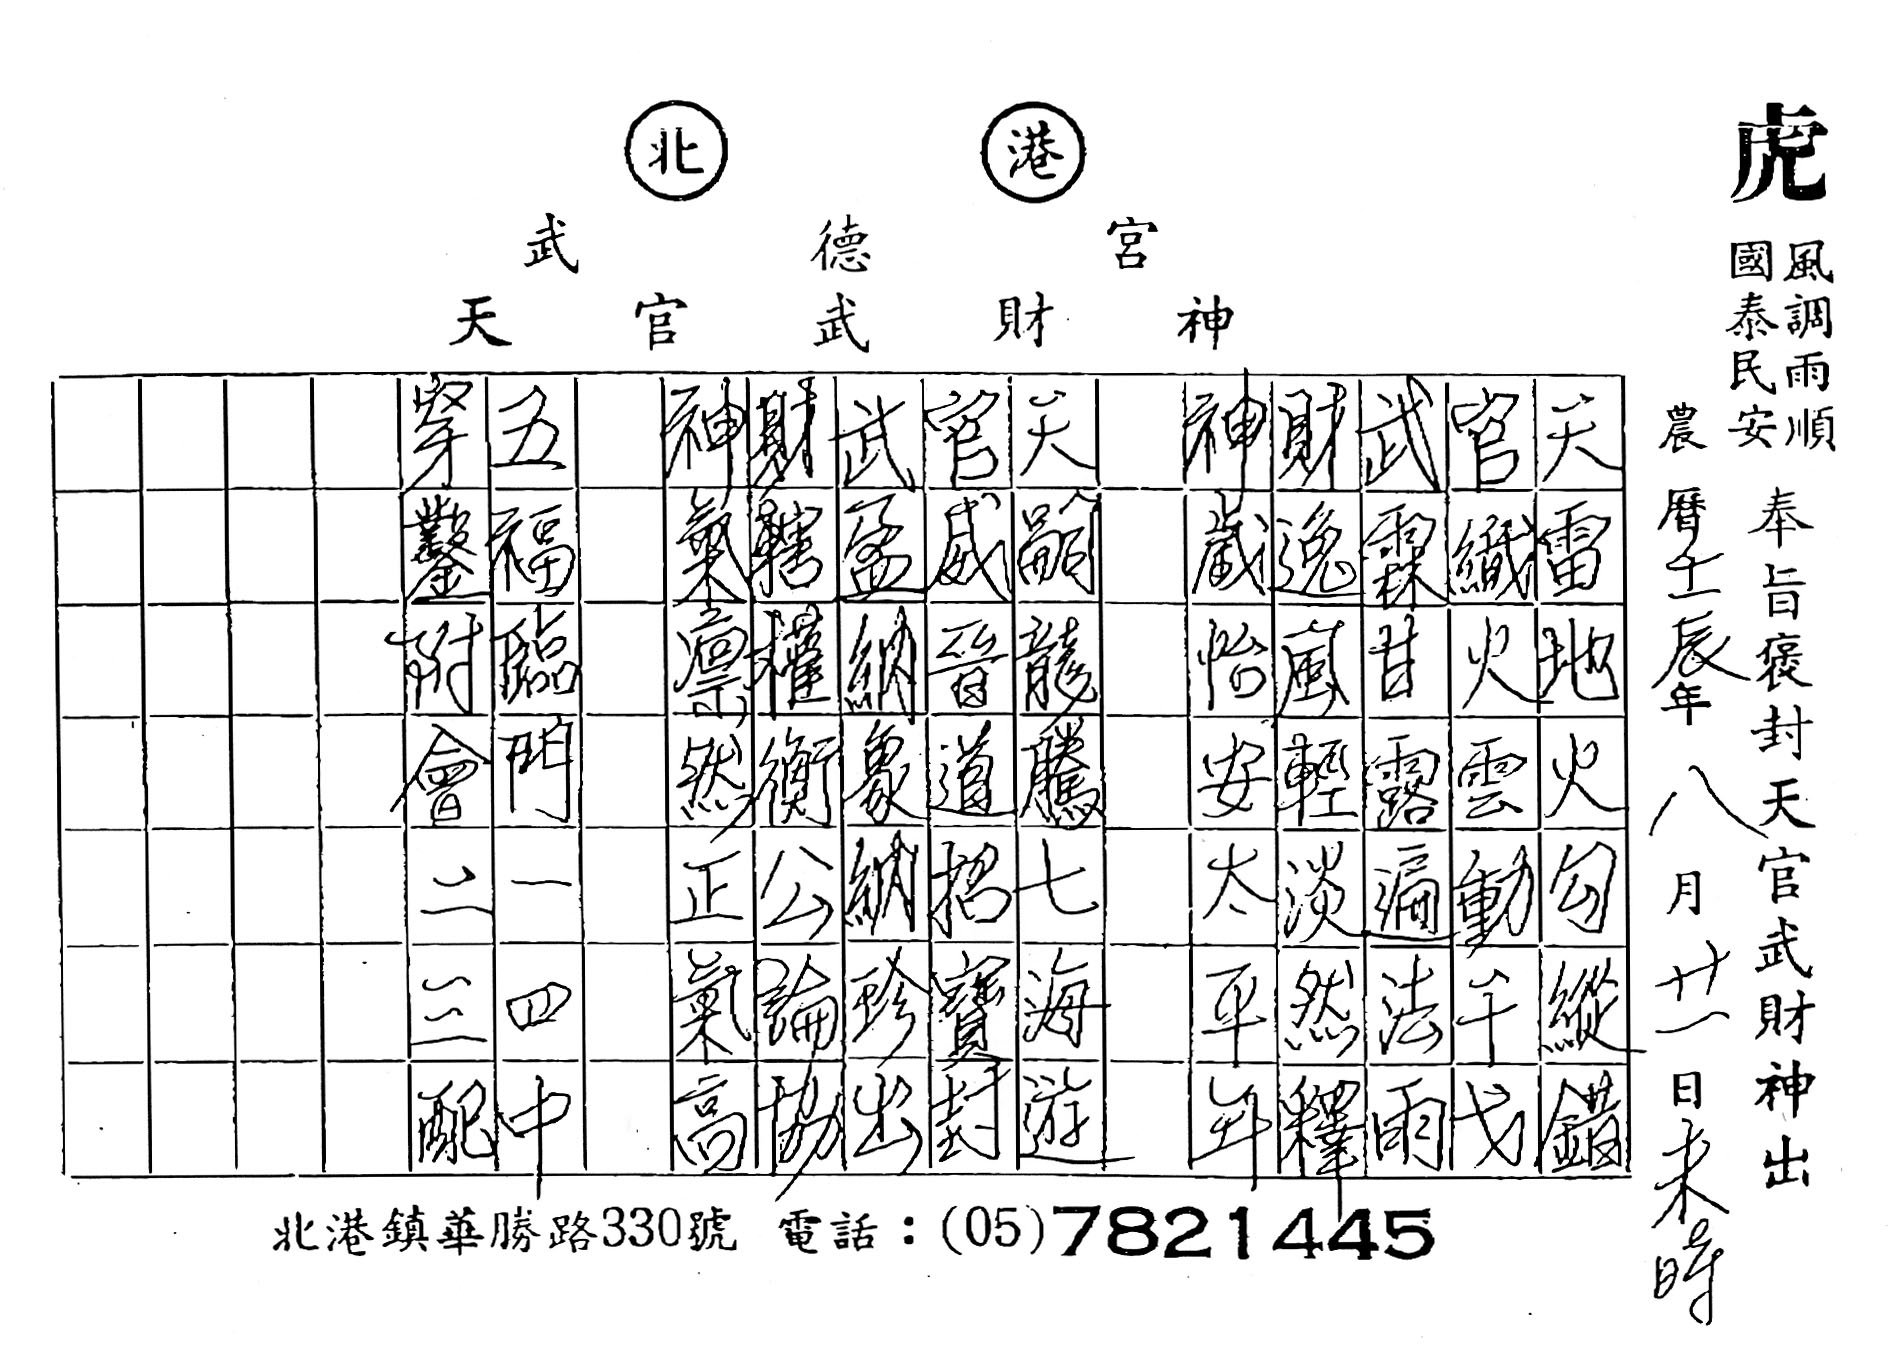 北 港
武 德 宮
天 官 武 財 神
虎
風調雨順
國泰民安
奉旨褒封天官武財神出
農曆壬辰年八月廿一日未時
天雷地火勾縱錯
官織火雲動干戈
武霖甘露漏法雨
財逸嵐輕淡然釋
神歲怡安太平年
天嗣龍騰七海遊
官威晉道招寶封
武盈納象納珍出
財轄權衡公論協
神氣凜然正氣高
五福臨門一四中
穿鑿附會二三配
北港鎮華勝路330號 電話：(05)7821445